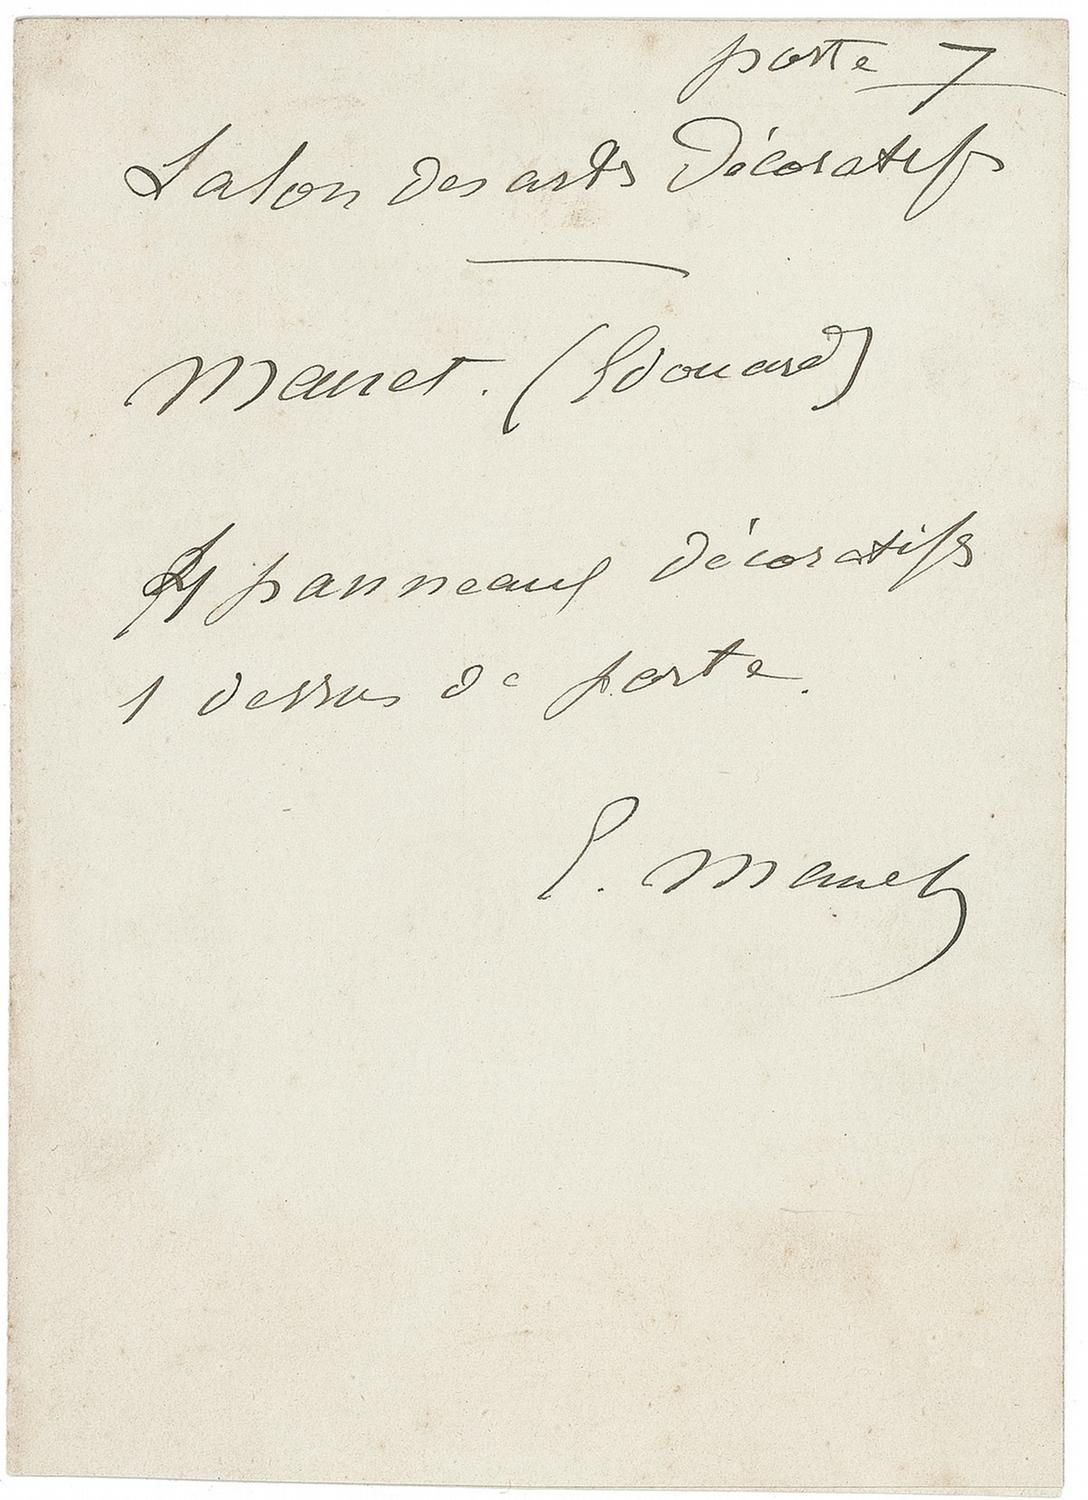 porte 7
Salon des arts Décoratifs
Manet. (Edouard)
4 panneaux décoratifs
1 dessus de porte.
E. Manet